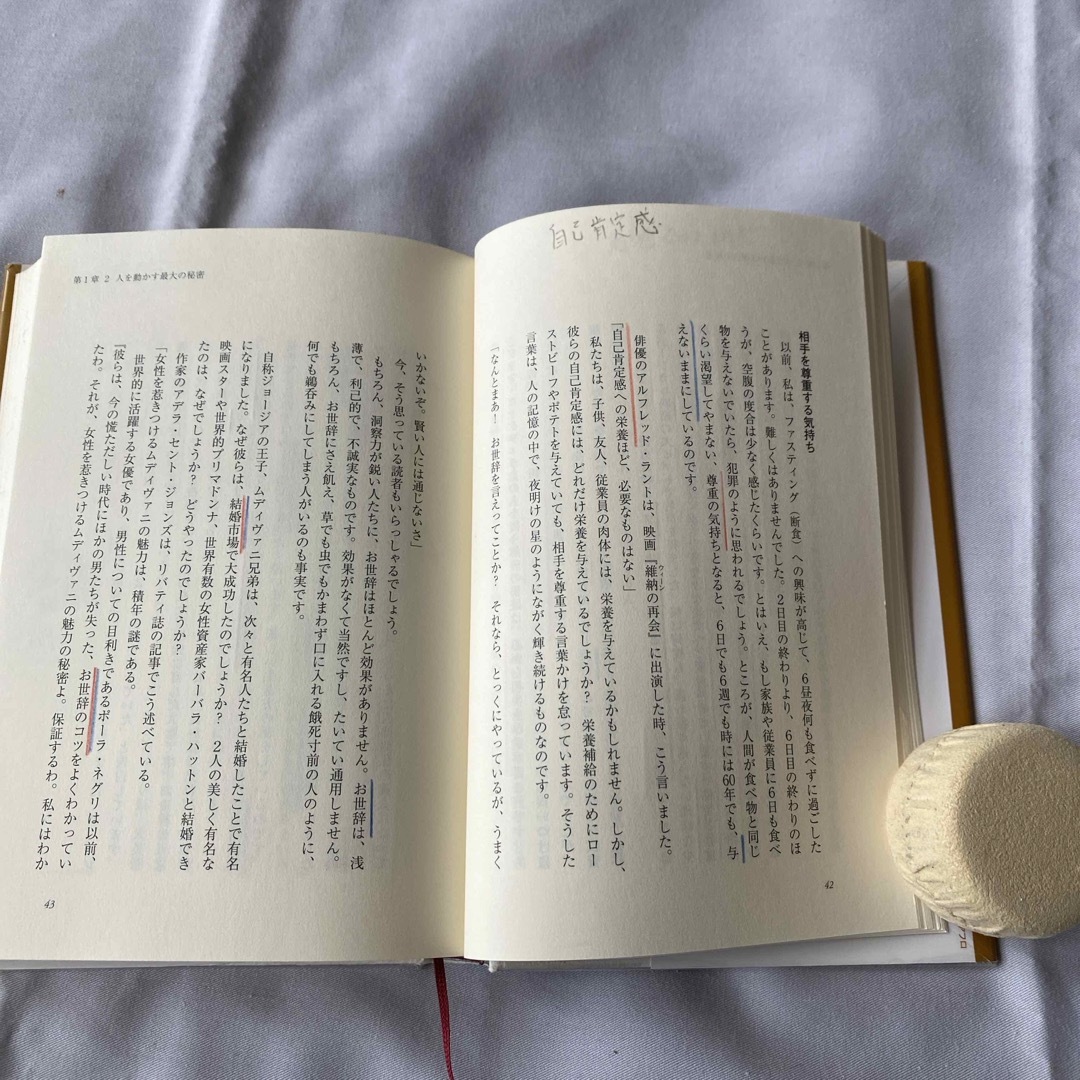 自己肯定感
相手を尊重する気持ち
以前、私は、ファスティング(断食)への興味が高じて、6昼夜何も食べずに過ごした
ことがあります。難しくはありませんでした。2日目の終わりより、6日目の終わりのほ
うが、空腹の度合は少なく感じたくらいです。とはいえ、もし家族や従業員に6日も食べ
物を与えないでいたら、犯罪のように思われるでしょう。ところが、人間が食べ物と同じ
くらい渇望してやまない、尊重の気持ちとなると、6日でも6週でも時には60年でも、与
えないままにしているのです。
俳優のアルフレッド・ラントは、映画『維納の再会』に出演した時、こう言いました。
ウィーン
「自己肯定感への栄養ほど、必要なものはない」
私たちは、子供、友人、従業員の肉体には、栄養を与えているかもしれません。しかし、
彼らの自己肯定感には、どれだけ栄養を与えているでしょうか? 栄養補給のためにロー
ストビーフやポテトを与えていても、相手を尊重する言葉かけを怠っています。そうした
言葉は、人の記憶の中で、夜明けの星のようにながく輝き続けるものなのです。
「なんとまあ! お世辞を言えってことか? それなら、とっくにやっているが、うまく
42
第1章 2 人を動かす最大の秘密
いかないぞ。賢い人には通じないさ」
今、そう思っている読者もいらっしゃるでしょう。
もちろん、洞察力が鋭い人たちに、お世辞はほとんど効果がありません。お世辞は、浅
薄で、利己的で、不誠実なものです。効果がなくて当然ですし、たいてい通用しません。
もちろん、お世辞にさえ飢え、草でも虫でもかまわず口に入れる餓死寸前の人のように、
何でも鵜呑みにしてしまう人がいるのも事実です。
自称ジョージアの王子、ムディヴァニ兄弟は、次々と有名人たちと結婚したことで有名
になりました。なぜ彼らは、結婚市場で大成功したのでしょうか? 2人の美しく有名な
映画スターや世界的プリマドンナ、世界有数の女性資産家バーバラ・ハットンと結婚でき
たのは、なぜでしょうか? どうやったのでしょうか?
作家のアデラ・セント・ジョンズは、リバティ誌の記事でこう述べている。
「女性を惹きつけるムディヴァニの魅力は、積年の謎である。
世界的に活躍する女優であり、男性についての目利きであるポーラ・ネグリは以前、
『彼らは、今の慌ただしい時代にほかの男たちが失った、お世辞のコツをよくわかってい
たわ。それが、女性を惹きつけるムディヴァニの魅力の秘密よ。保証するわ。私にはわか
43